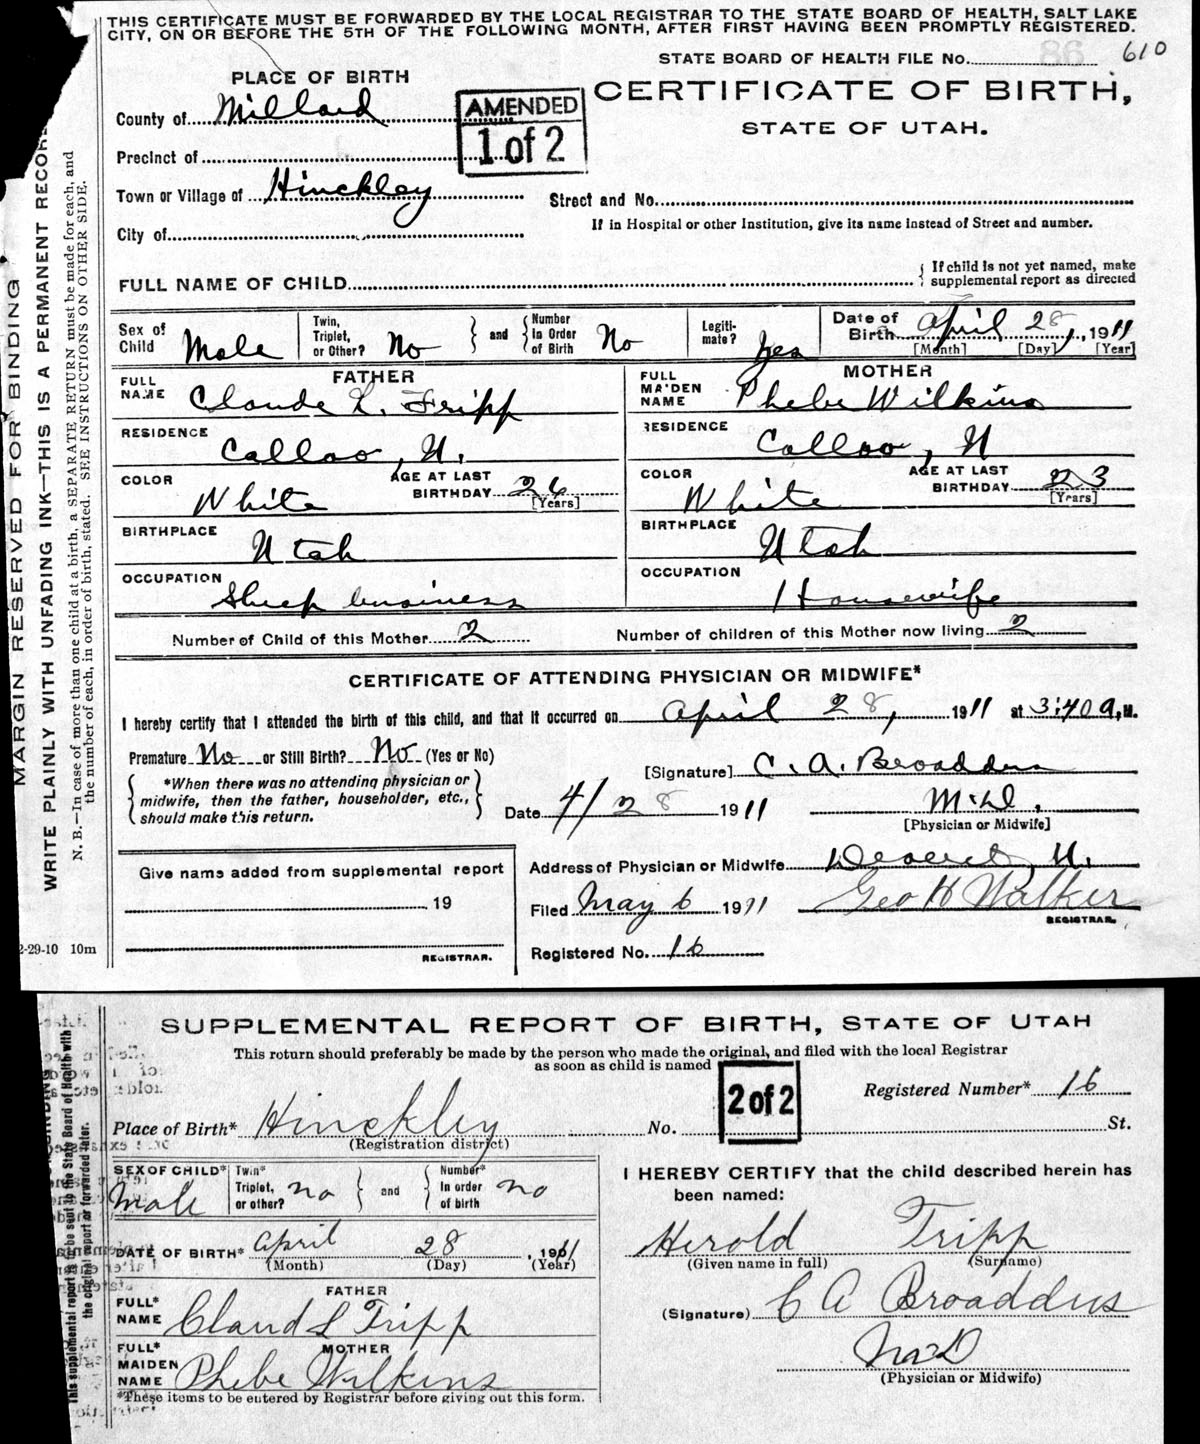 THIS CERTIFICATE MUST BE FORWARDED BY THE LOCAL REGISTRAR TO THE STATE BOARD OF HEALTH, SALT LAKE
CITY, ON OR BEFORE THE 5TH OF THE FOLLOWING MONTH, AFTER FIRST HAVING BEEN PROMPTLY REGISTERED.
STATE BOARD OF HEALTH FILE No. 86 610
PLACE OF BIRTH
CERTIFICATE OF BIRTH,
STATE OF UTAH.
AMENDED
1 of 2
County of Millard
Precinct of
Town or Village of Hinckley
Street and No.
If in Hospital or other Institution, give its name instead of Street and number.
City of
FULL NAME OF CHILD
If child is not yet named, make
supplemental report as directed
Sex of Child Male
Twin, Triplet, or Other? No
and Number in Order of Birth No
Legitimate? Yes
Date of Birth April 28, 1911
[Month] [Day] [Year]
FATHER
FULL NAME Claude L. Fripp
RESIDENCE Callao, U.
COLOR White
AGE AT LAST BIRTHDAY 26
[Years]
BIRTHPLACE Utah
OCCUPATION Sheep business
MOTHER
FULL MAIDEN NAME Phebe Wilkins
RESIDENCE Callao, U
COLOR White
AGE AT LAST BIRTHDAY 23
[Years]
BIRTHPLACE Utah
OCCUPATION Housewife
Number of Child of this Mother 2
Number of children of this Mother now living 2
CERTIFICATE OF ATTENDING PHYSICIAN OR MIDWIFE*
I hereby certify that I attended the birth of this child, and that it occurred on April 28, 1911 at 3:40 a, M.
Premature No or Still Birth? No (Yes or No)
*When there was no attending physician or
midwife, then the father, householder, etc.,
should make this return.
[Signature] C. A. Broaddus
Date 4/28 1911
M.D.
[Physician or Midwife]
Give name added from supplemental report
19
REGISTRAR.
Address of Physician or Midwife Deseret, U.
Filed May 6 1911
Geo H Walker
REGISTRAR.
Registered No. 16
2-29-10 10m
MARGIN RESERVED FOR BINDING
WRITE PLAINLY WITH UNFADING INK—THIS IS A PERMANENT RECORD
N. B.—In case of more than one child at a birth, a SEPARATE RETURN must be made for each, and
the number of each, in order of birth, stated. SEE INSTRUCTIONS ON OTHER SIDE.
SUPPLEMENTAL REPORT OF BIRTH, STATE OF UTAH
This return should preferably be made by the person who made the original, and filed with the local Registrar
as soon as child is named
2 of 2
Registered Number* 16
Place of Birth* Hinckley No. St.
(Registration district)
SEX OF CHILD* Male
Twin* Triplet, or other? no
and Number* In order of birth no
DATE OF BIRTH* April 28, 1911
(Month) (Day) (Year)
FATHER
FULL* NAME Claud L Tripp
MOTHER
FULL* MAIDEN NAME Phebe Wilkins
*These items to be entered by Registrar before giving out this form.
I HEREBY CERTIFY that the child described herein has
been named:
Herold Tripp
(Given name in full) (Surname)
(Signature) C A Broaddus
M D
(Physician or Midwife)
This supplemental report is to be sent to the State Board of Health with
the original report or forwarded later.